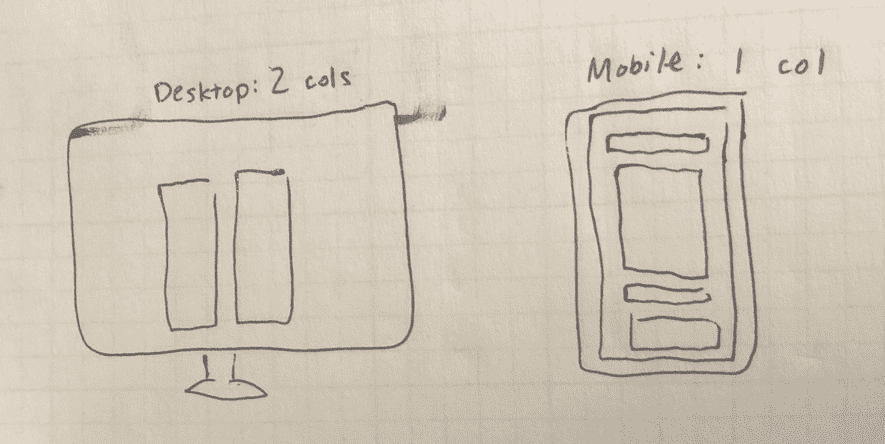 Desktop: 2 cols
Mobile: 1 col